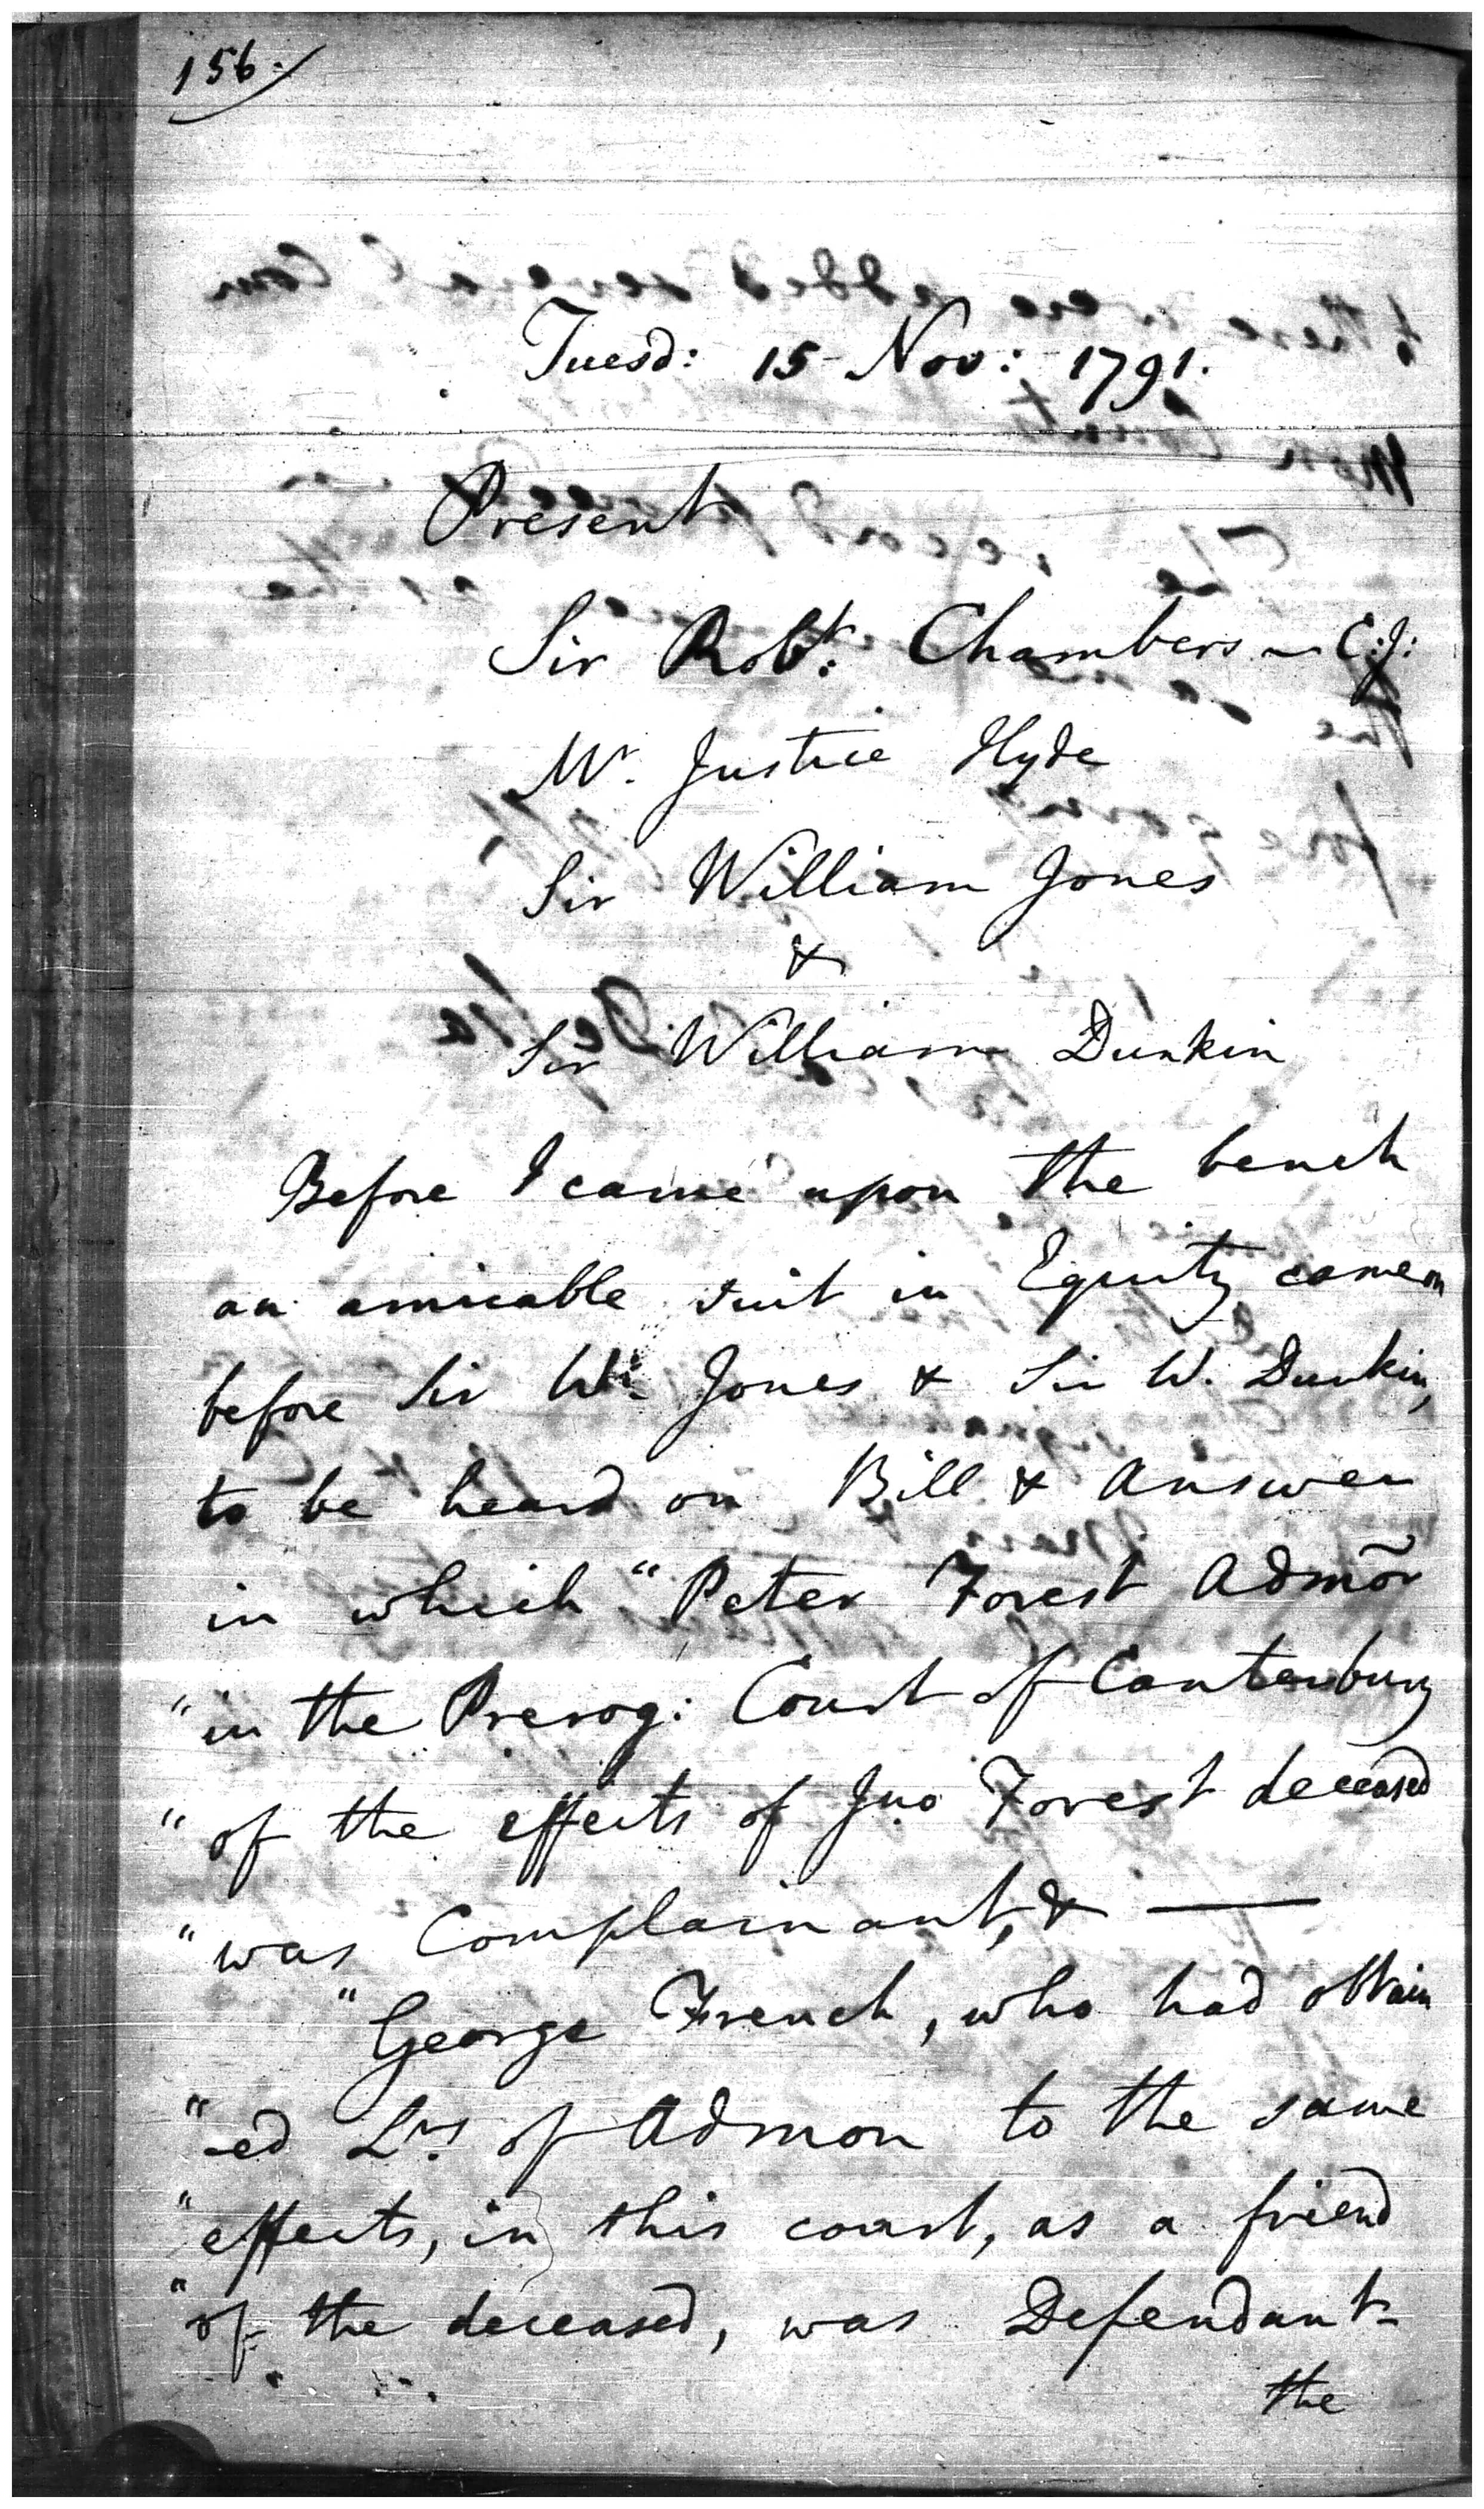 156.
Tuesd: 15 Nov: 1791.
Present
Sir Robt: Chambers ~ C:J:
Mr. Justice Hyde
Sir William Jones
&
Sir William Dunkin
Before I came upon the bench
an amicable suit in Equity came on
before Sir Wm. Jones & Sir W. Dunkin,
to be heard on Bill & Answer
in which "Peter Forest Admõr
"in the Prerog: Court of Canterbury
"of the effects of Jno Forest deceased
"was Complainant, & —
"George French, who had obtain
"-ed Lrs. of Admon to the same
"effects, in this court, as a friend
"of the deceased, was Defendant-
the